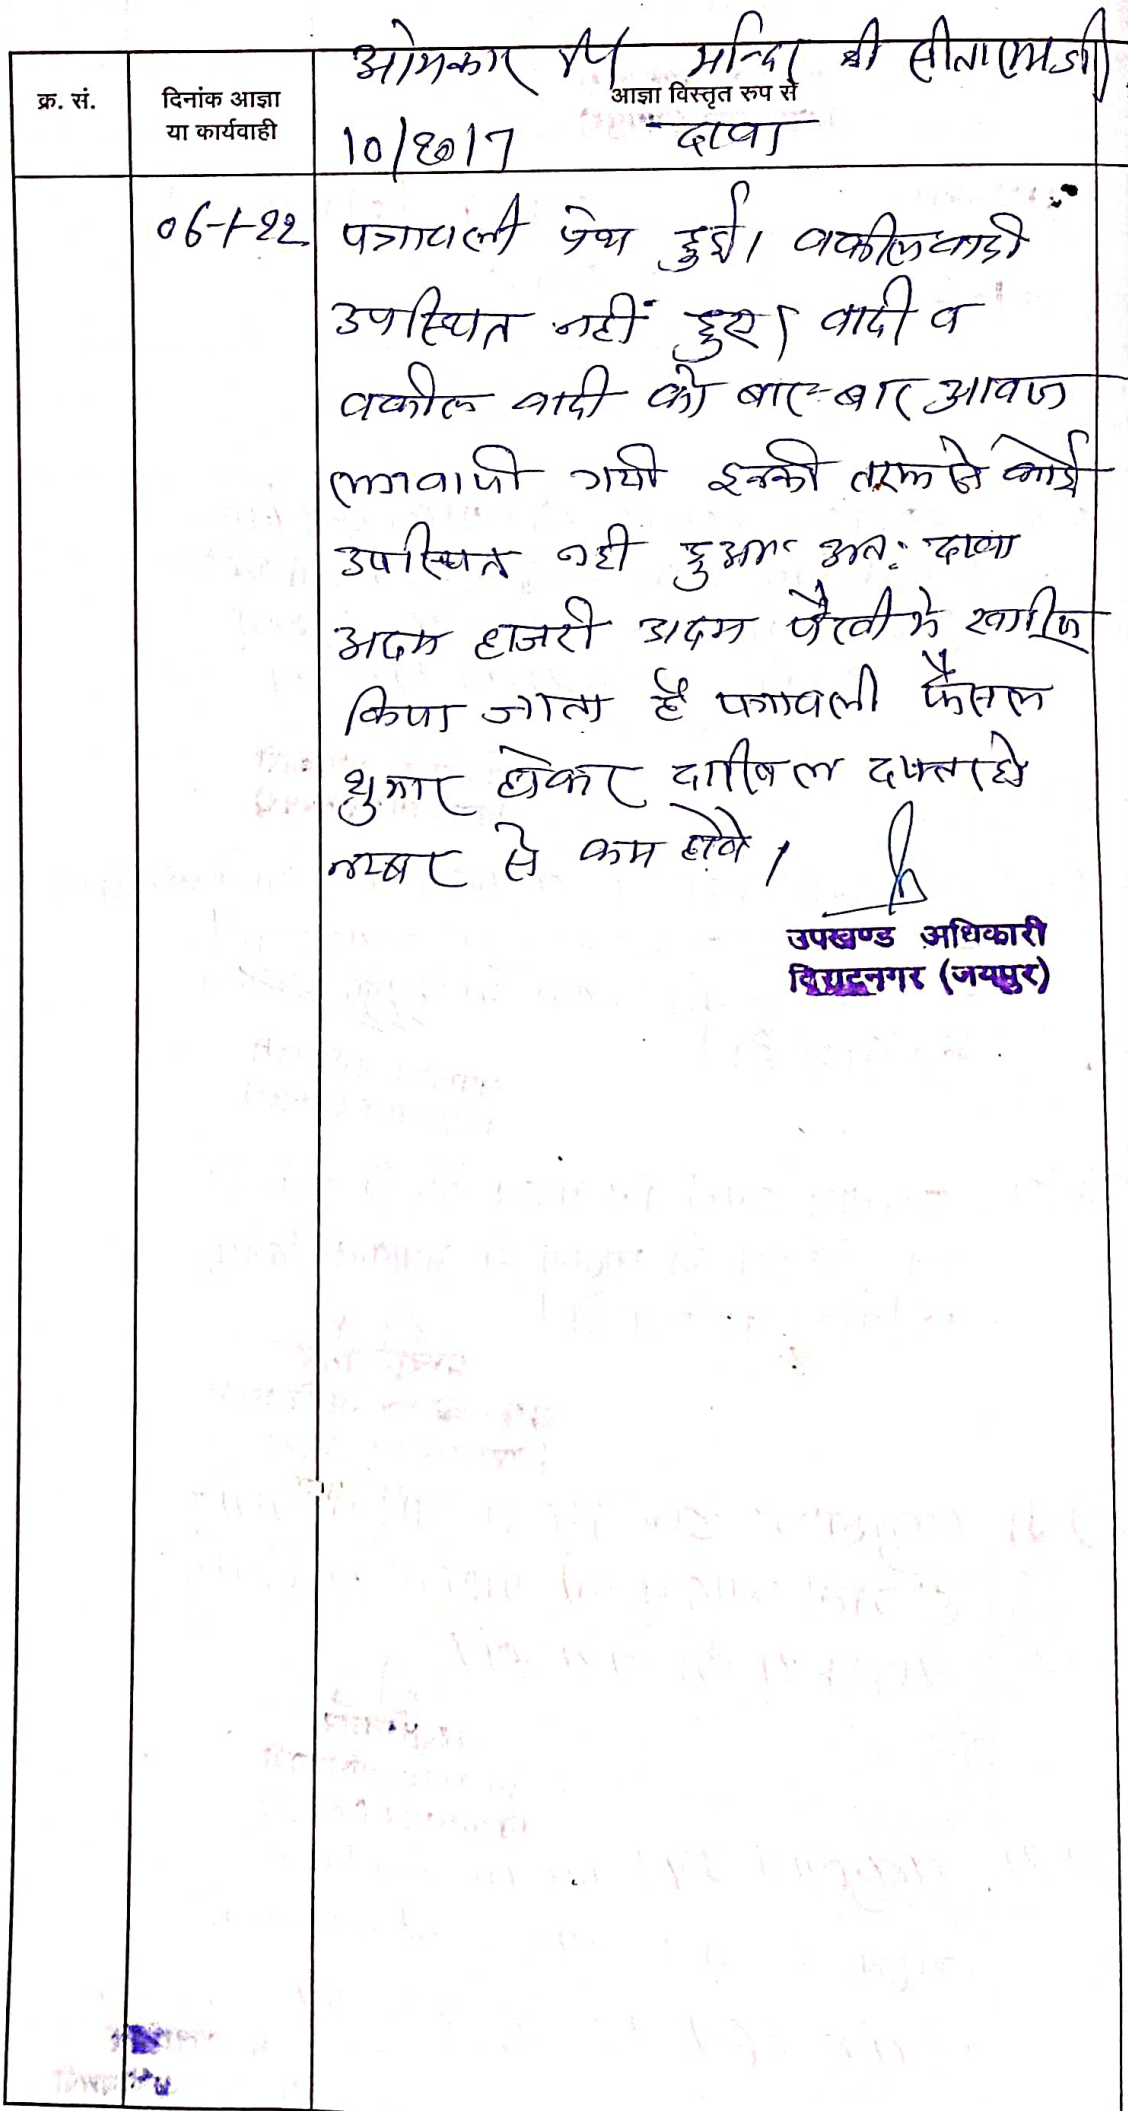 ओमकार V/s मन्दिर श्री सीतारामजी
क्र. सं.
दिनांक आज्ञा
या कार्यवाही
आज्ञा विस्तृत रुप से
10/2017 दावा
06-1-22 पत्रावली पेश हुई। वकील वादी
उपस्थित नहीं हुए। वादी व
वकील वादी को बार-बार आवाज
लगवायी गयी इनकी तरफ से कोई
उपस्थित नही हुआ अत: दावा
अदम हाजरी अदम पैरवी मे खारीज
किया जाता है पत्रावली फैसल
शुमार होकर दाखिल दफ्तर हो
नम्बर से कम होवे।
उपखण्ड अधिकारी
विराटनगर (जयपुर)